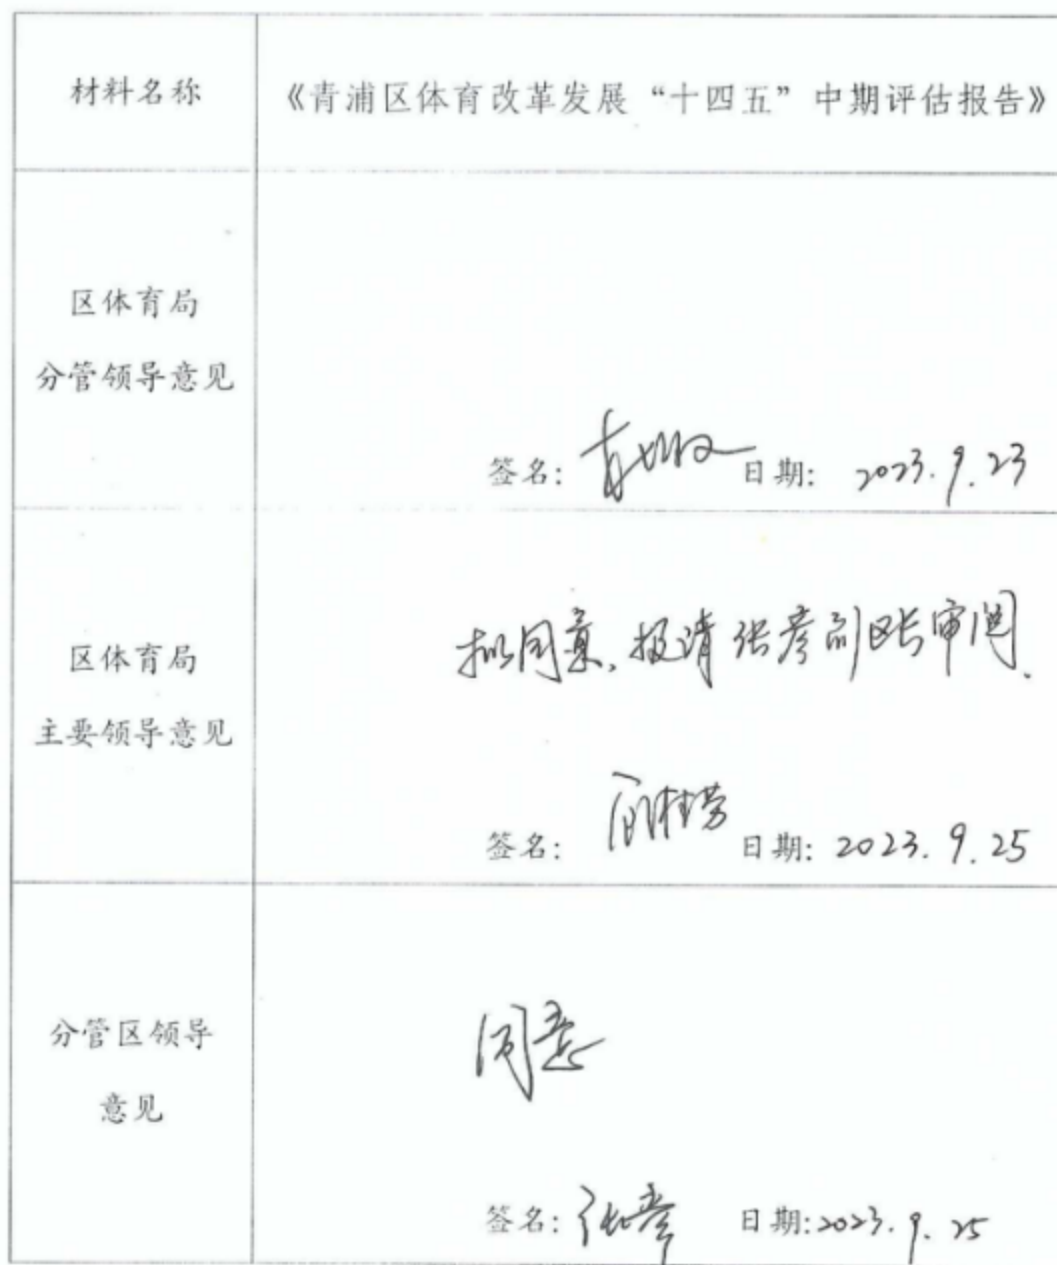 材料名称
《青浦区体育改革发展“十四五”中期评估报告》
区体育局
分管领导意见
签名：
日期： 2023.9.23
区体育局
主要领导意见
拟同意，报请张彦副区长审阅.
签名：
日期: 2023.9.25
分管区领导
意见
同意
签名: 张彦
日期:2023.9.25